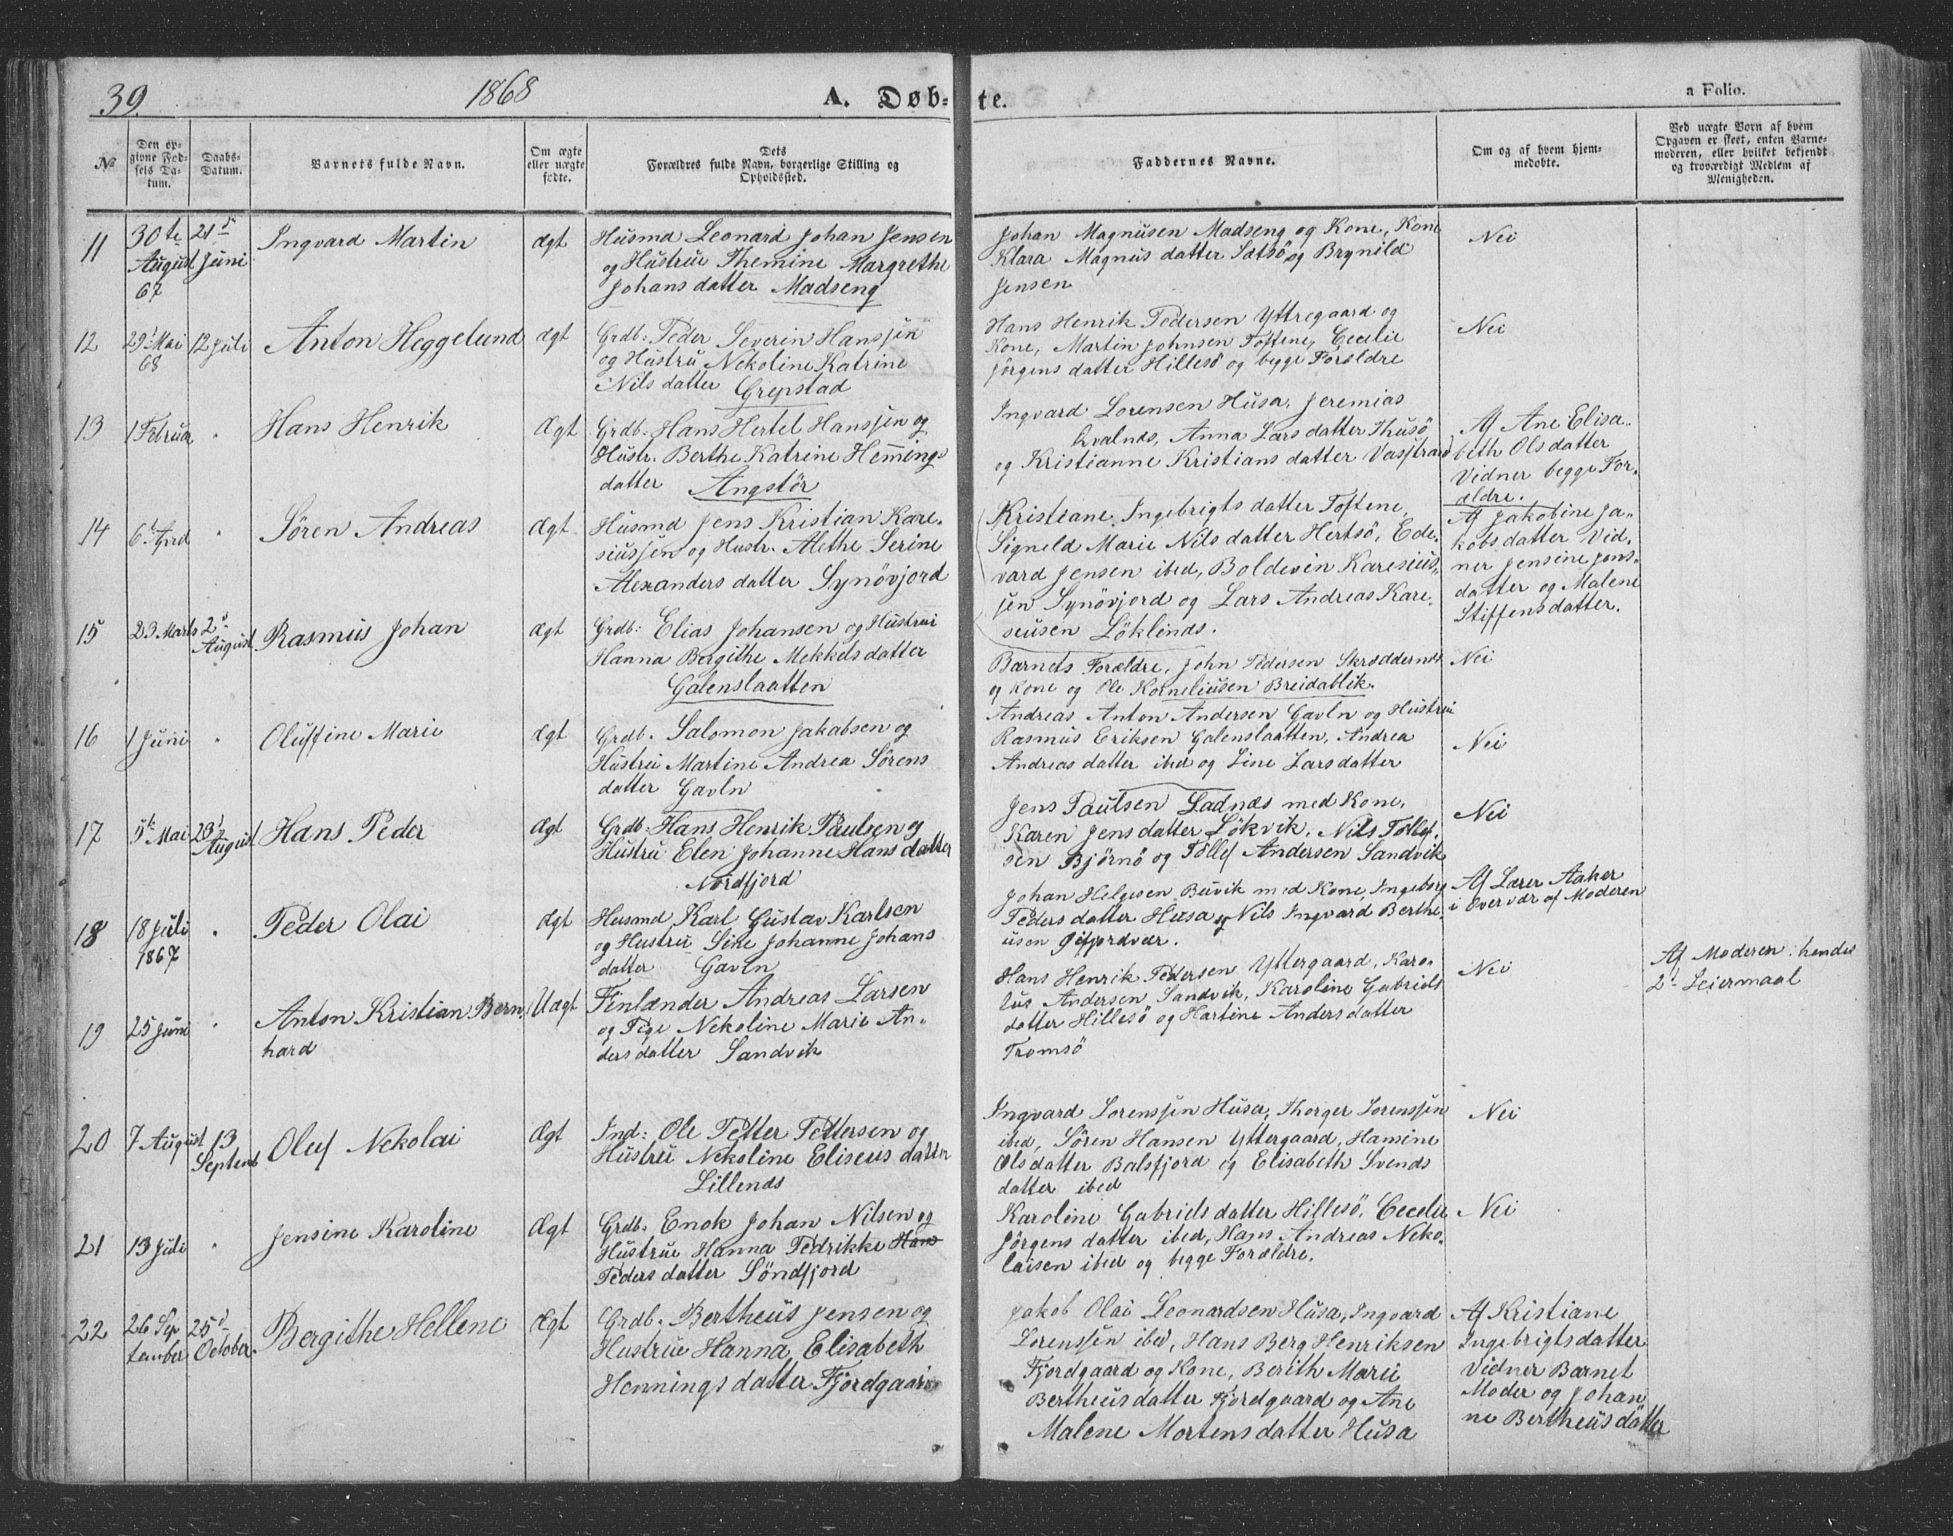 39.
1868
A. Døbte.
a Folio.
№
Den opgivne Fødsels Datum.
Daabs-Datum.
Barnets fulde Navn.
Om ægte eller uægte fødte.
Dets Forældres fulde Navn, borgerlige Stilling og Opholdssted.
Faddernes Navne.
Om og af hvem hjemmedøbte.
Ved uægte Børn af hvem Opgaven er skeet, enten Barnemoderen, eller hvilket bekjendt og troværdigt Medlem af Menigheden.
11
30te August 67
21 Juni
Ingvard Martin
Ægt
Husmd Leonard Johan Jensen
og Hustrue Themine Margrethe
Johans datter Madseng
Johan Magnusen Madseng og Kone, Kone
Klara Magnus datter Satsö og Brynild
Jensen
Nei
12
29 Mai 68
12 Juli
Anton Heggelund
Ægt
Grdb: Peder Severin Hanssen
og Hustru Nekoline Katrine
Nils datter Grepstad
Hans Henrik Pedersen Yttregaard og
Kone, Martin Johnsen Töftene, Cecelie
Jörgens datter Hillesö og begge Forældre
Nei
13
1 Februar
"
Hans Henrik
Ægt
Grdb. Hans Hertel Hanssen og
Hustr. Berthe Katrine Hemings
datter Angstör
Ingvard Lorensen Husa, Jeremias
Kvalnds, Anna Lars datter Thusö
og Kristianne Kristians datter Vasstrand
Af Ane Elisa-
beth Ols datter
Vidner begge For-
ældre.
14
6 April
"
Sören Andreas
Ægt
Husmd Jens Kristian Kare-
siussen og Hustr. Alethe Serine
Alexanders datter Synövjord
Kristiane Ingebrigts datter Toftene,
Signeld Marie Nils datter Hertsö, Ede-
vard Jensen ibed, Boldevin Karesius-
sen Synövjord og Lars Andreas Kare-
siusen Löklinds.
Af Jakobine Ja-
kobs datter Vid-
ner Jensine Jens
datter og Malene
Stiffens datter.
15
23 Marts
2 August
Rasmus Johan
Ægt
Grdb: Elias Johansen og Hustrue
Hanna Bergithe Mekkels datter
Galenslaatten
Barnets Forældre, John Pedersen Skrøddernes
og Kone og Ole Korneliusen Breidablik.
Nei
16
1 Juni
"
Oluffine Marie
Ægt
Grdb. Salomon Jakobsen og
Hustrue Martine Andrea Sörens
datter Gavln
Andreas Anton Andersen Gavln og Hustrue
Rasmus Eriksen Galenslaatten, Andrea
Andreas datter ibed og Line Lars datter
Nei
17
5te Mai
23 August
Hans Peder
Ægt
Grdb. Hans Henrik Paulsen og
Hustru Elen Johanne Hans datter
Nordfjord
Jens Paulsen Ladnæs med Kone,
Karen Jens datter Lökvik, Nils Tollef-
sen Björnö og Tollef Andersen Sandvik
Nei
18
18 Juli 1867
"
Peder Olai
Ægt
Husmd Karl Gustav Karlsen
og Hustru Sine Johanne Johans
datter Gavln
Johan Helgesen Buvik med Kone, Ingeborg
Peders datter Husa og Nils Ingvard Berthe
usen Öifjordvær.
Af Lærer Aaker
i Overvær af Moderen
19
25 Juni
"
Anton Kristian Bern-
hard
Uægt
Finlænder Andreas Larsen
og Pige Nekoline Marie An-
ders datter Sandvik
Hans Henrik Pedersen Yttergaard, Karo-
lus Andersen Sandvik, Karoline Gabriels
datter Hillesö og Hartine Anders datter
Tromsö
Nei
Af Moderen: hendes
2det Leiermaal
20
7 August
13 Septemb
Oluf Nekolai
Ægt
Ind: Ole Petter Pettersen og
Hustru Nekoline Eliseus datter
Lillends
Ingvard Lorenssen Husa, Thorger Lorenssen
ibed, Sören Hansen Yttergaard, Hansine
Ols datter Balsfjord og Elisabeth Svends
datter ibed
Nei
21
13 Juli
"
Jensine Karoline
Ægt
Grdb. Enok Johan Nilsen og
Hustrue Hanna Fedrikke Han
Peders datter Söndfjord
Karoline Gabriels datter Hillesö, Cecelie
Jörgens datter ibed, Hans Andreas Neko-
laisen ibed og begge Forældre.
Nei
22
26 Sep tember
25 October.
Bergithe Hellene
Ægt
Grdb. Bertheus Jensen og
Hustrue Hanna Elisabeth
Hennings datter Fjordgaard
Jakob Olai Leonardsen Husa, Ingvard
Lorenssen ibed, Hans Berg Henriksen
Fjordgaard og Kone, Berith Marie
Bertheus datter Fjordgaard og Ane
Malene Mortens datter Husa
Af Kristiane
Ingebrigts datter
Vidner Barnet
Moder og Johan
ne Bertheus datter